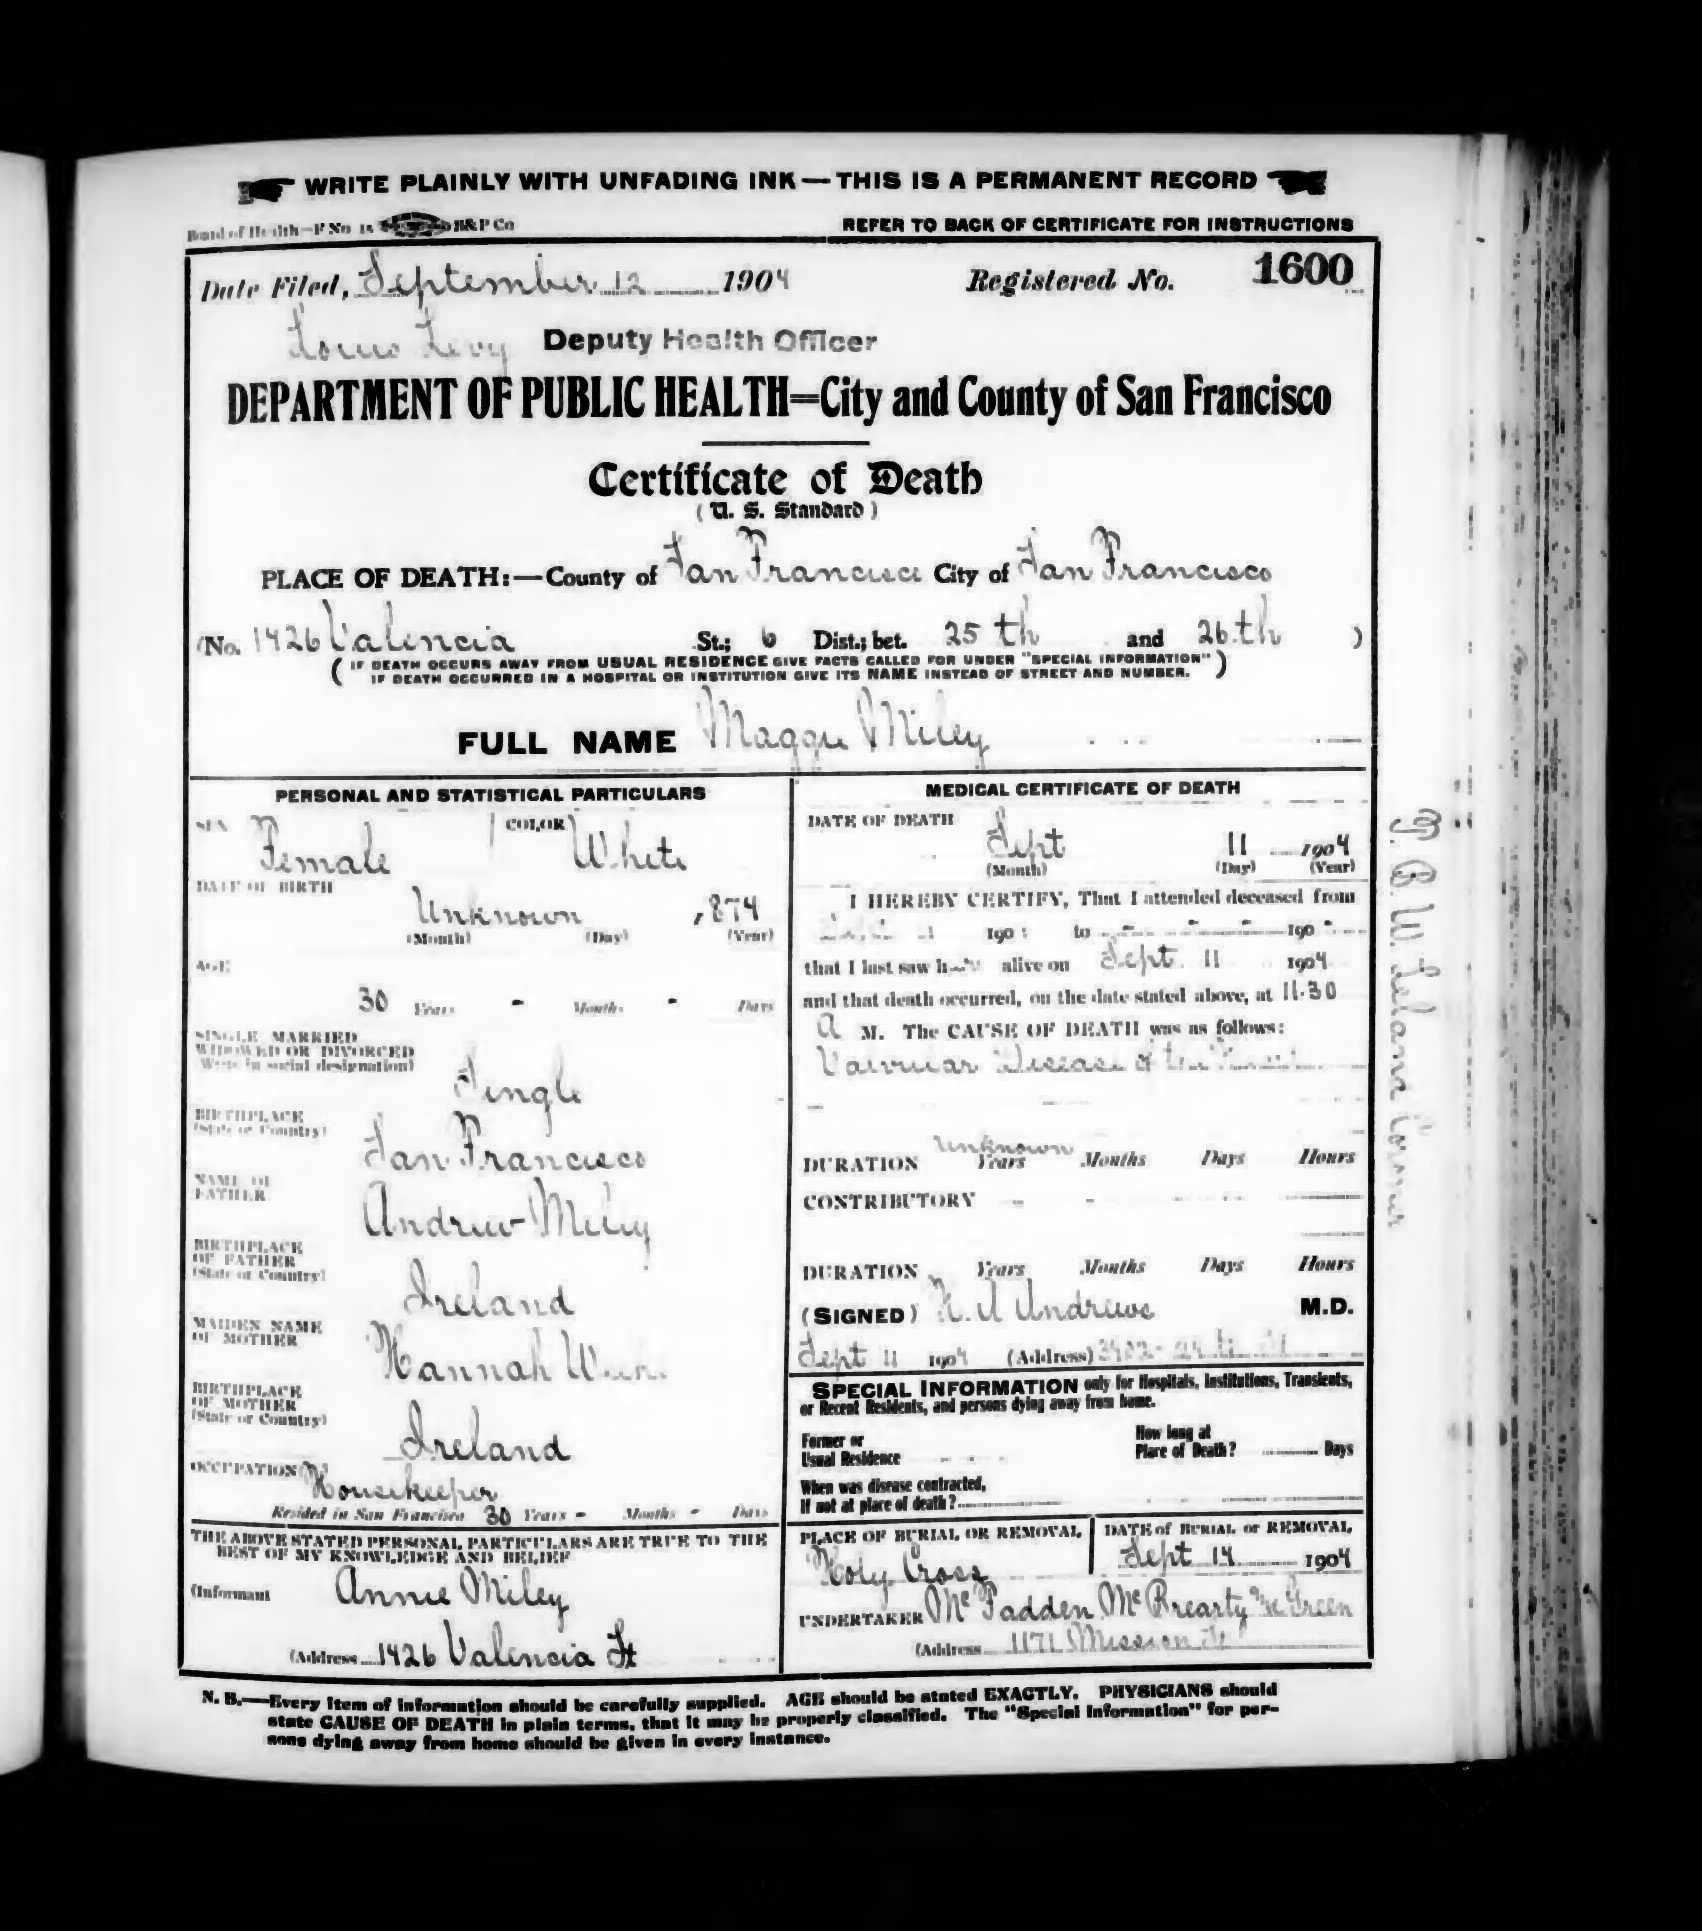 WRITE PLAINLY WITH UNFADING INK — THIS IS A PERMANENT RECORD
Board of Health—F No 15 B&P Co REFER TO BACK OF CERTIFICATE FOR INSTRUCTIONS
Date Filed, September 12 1904 Registered No. 1600
Louis Levy Deputy Health Officer
DEPARTMENT OF PUBLIC HEALTH=City and County of San Francisco
Certificate of Death
( U. S. Standard )
PLACE OF DEATH:—County of San Francisco City of San Francisco
(No. 1426 Valencia St.; 6 Dist.; bet. 25 th and 26 th )
( IF DEATH OCCURS AWAY FROM USUAL RESIDENCE GIVE FACTS CALLED FOR UNDER "SPECIAL INFORMATION" )
IF DEATH OCCURRED IN A HOSPITAL OR INSTITUTION GIVE ITS NAME INSTEAD OF STREET AND NUMBER.
FULL NAME Maggie Miley
PERSONAL AND STATISTICAL PARTICULARS
SEX Female COLOR White
DATE OF BIRTH
Unknown 1874
(Month) (Day) (Year)
AGE
30 Years - Months - Days
SINGLE MARRIED
WIDOWED OR DIVORCED
(Write in social designation)
Single
BIRTHPLACE
(State or Country)
San Francisco
NAME OF
FATHER
Andrew Miley
BIRTHPLACE
OF FATHER
(State or Country)
Ireland
MAIDEN NAME
OF MOTHER
Hannah
BIRTHPLACE
OF MOTHER
(State or Country)
Ireland
OCCUPATION Housekeeper
Resided in San Francisco 30 Years - Months - Days
THE ABOVE STATED PERSONAL PARTICULARS ARE TRUE TO THE
BEST OF MY KNOWLEDGE AND BELIEF
(Informant Annie Miley
(Address 1426 Valencia St
MEDICAL CERTIFICATE OF DEATH
DATE OF DEATH
Sept 11 1904
(Month) (Day) (Year)
I HEREBY CERTIFY, That I attended deceased from
190 to - - - 190 -
that I last saw h alive on Sept 11 1904
and that death occurred, on the date stated above, at 11.30
A M. The CAUSE OF DEATH was as follows:
Valvular Disease of the Heart
DURATION Unknown Years Months Days Hours
CONTRIBUTORY - -
DURATION Years Months Days Hours
(SIGNED) Andrews M.D.
Sept 11 1904 (Address)
SPECIAL INFORMATION only for Hospitals, Institutions, Transients,
or Recent Residents, and persons dying away from home.
Former or
Usual Residence
How long at
Place of Death? Days
When was disease contracted,
If not at place of death?
PLACE OF BURIAL OR REMOVAL
Holy Cross
DATE of BURIAL or REMOVAL
Sept 14 1904
UNDERTAKER McFadden McBrearty & Green
(Address 1171 Mission St
N. B.—Every item of information should be carefully supplied. AGE should be stated EXACTLY. PHYSICIANS should
state CAUSE OF DEATH in plain terms, that it may be properly classified. The "Special Information" for per-
sons dying away from home should be given in every instance.
Leland Coroner